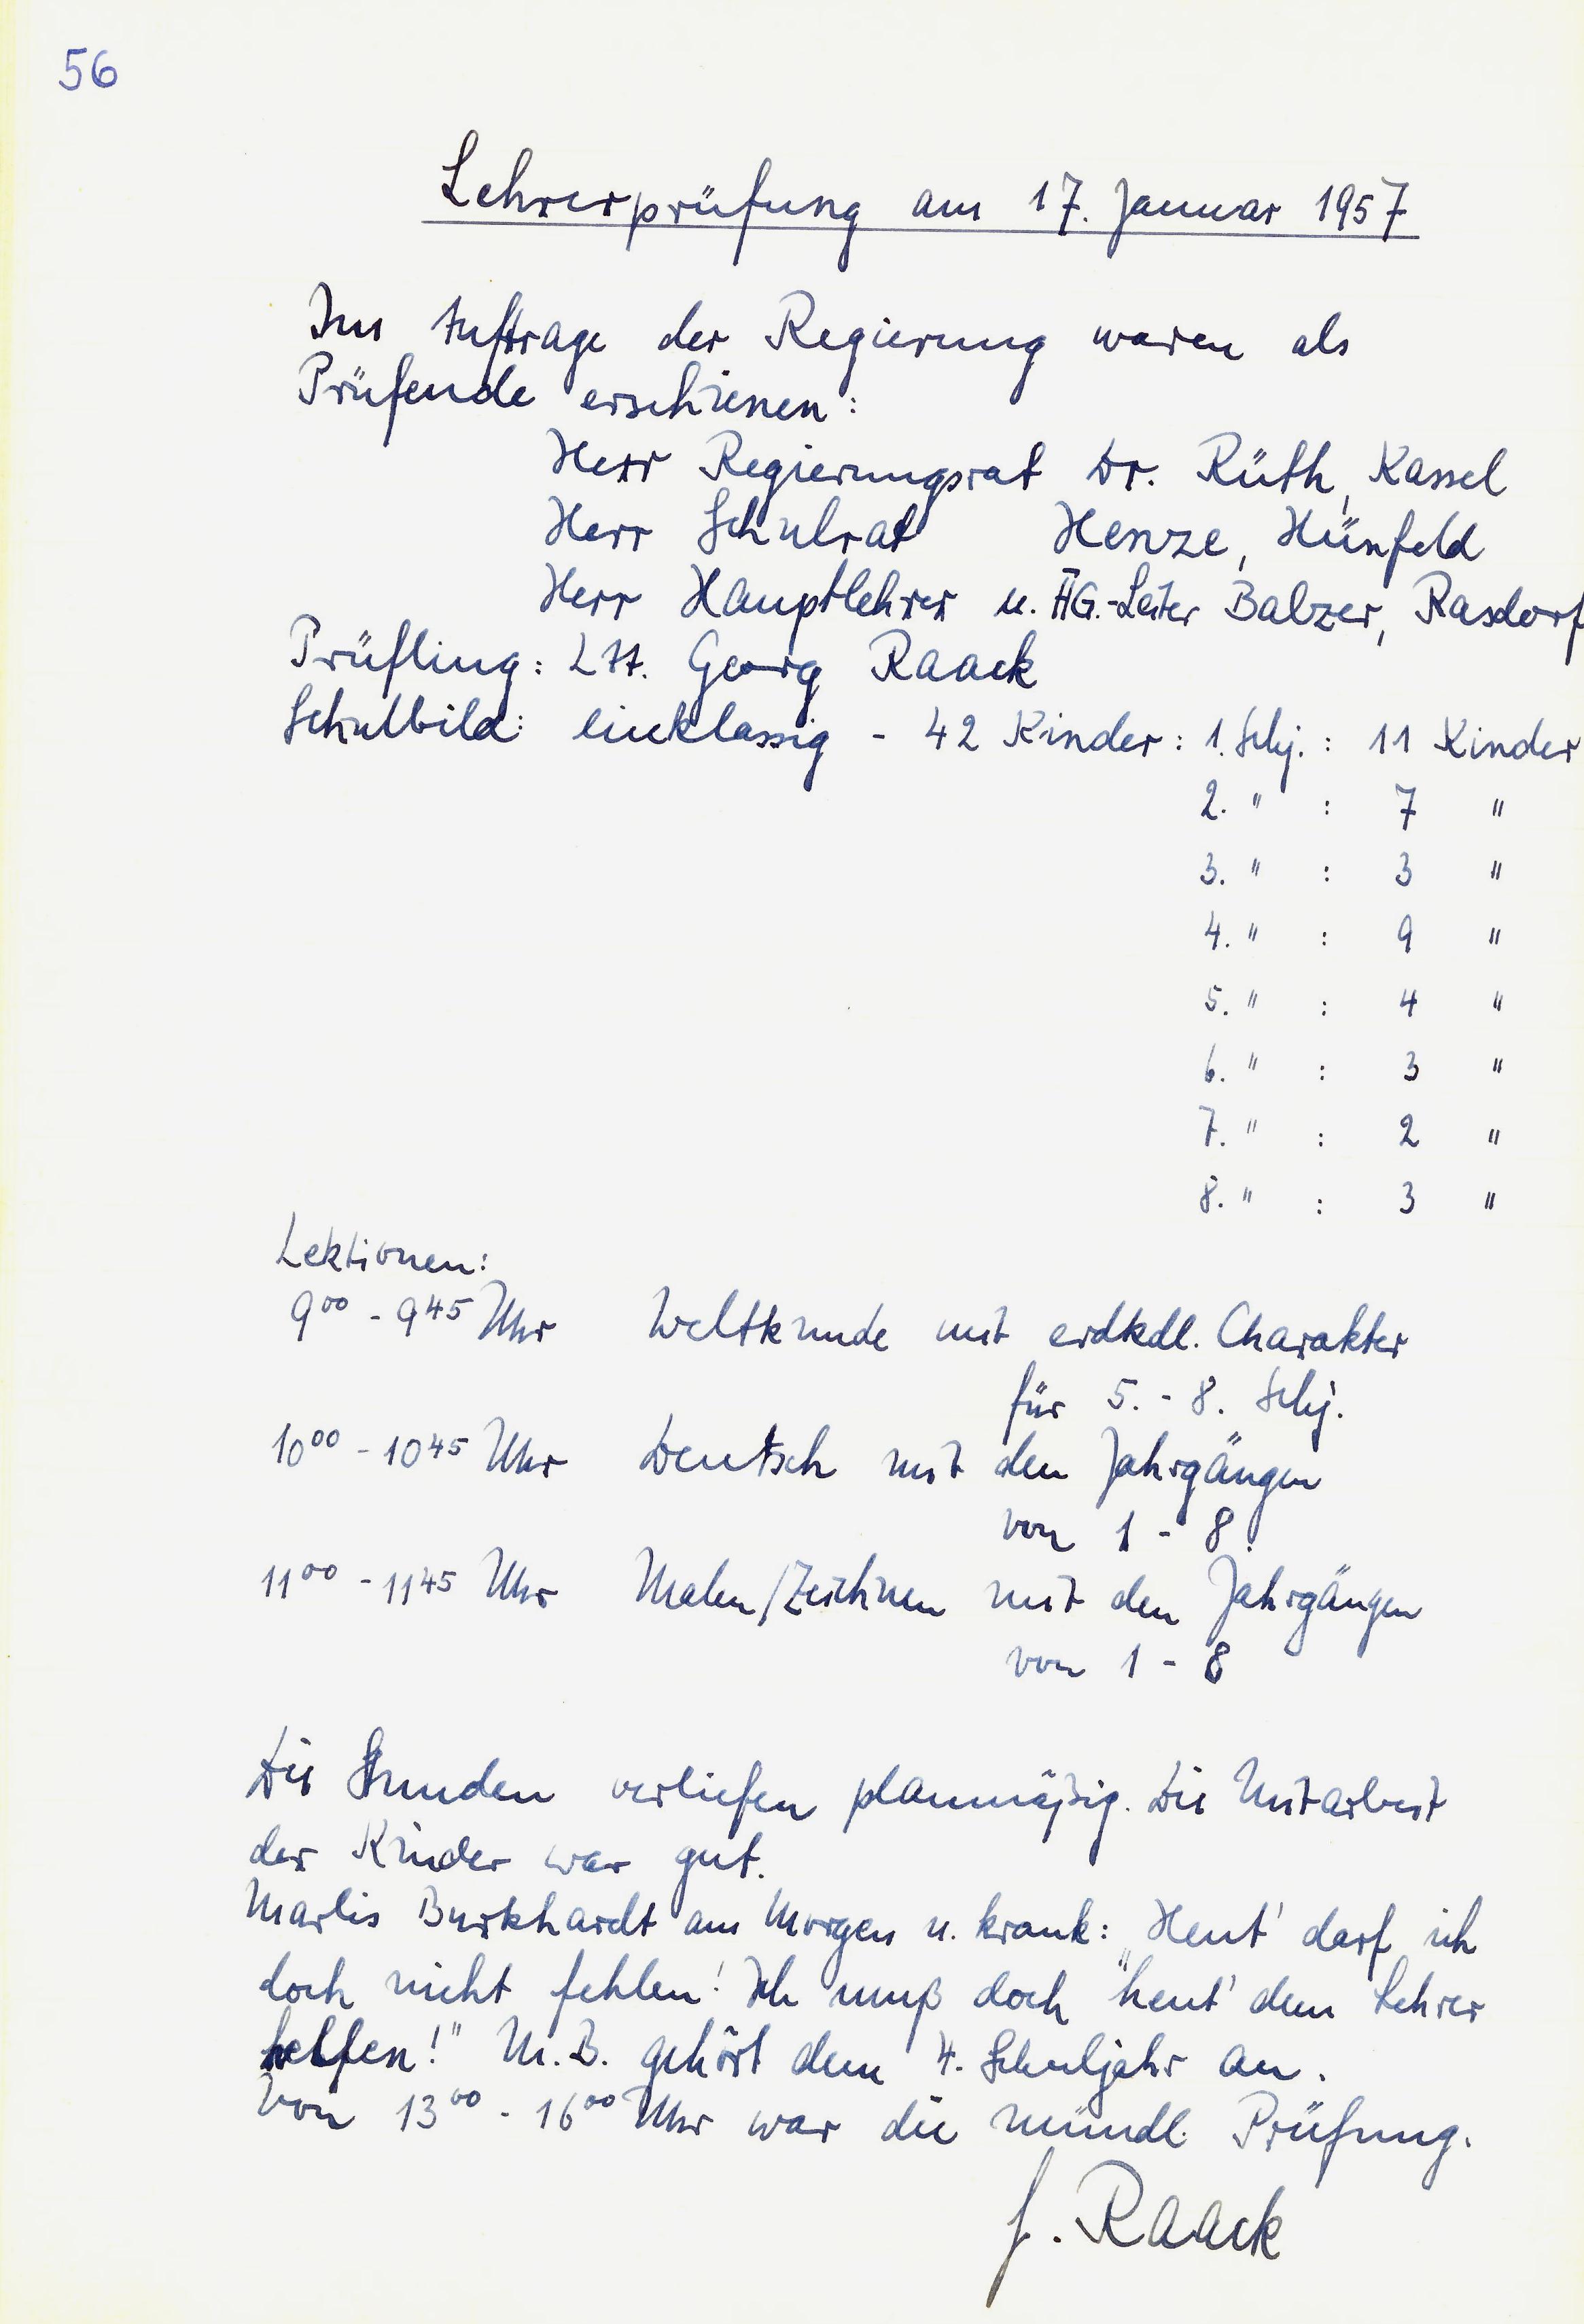 56
Lehrerprüfung am 17. Januar 1957
Im Auftrage der Regierung waren als
Prüfende erschienen:
Herr Regierungsrat Dr. Rüth, Kassel
Herr Schulrat Henze, Hünfeld
Herr Hauptlehrer u. AG.-Leiter Balzer, Rasdorf
Prüfling: LAA. Georg Raack
Schulbild: einklassig - 42 Kinder: 1. Schj. : 11 Kinder
2. " : 7 "
3. " : 3 "
4. " : 9 "
5. " : 4 "
6. " : 3 "
7. " : 2 "
8. " : 3 "
Lektionen:
9⁰⁰ - 9⁴⁵ Uhr Weltkunde mit erdkdl. Charakter
für 5. - 8. Schj.
10⁰⁰ - 10⁴⁵ Uhr Deutsch mit den Jahrgängen
von 1 - 8.
11⁰⁰ - 11⁴⁵ Uhr Malen/Zeichnen mit den Jahrgängen
von 1 - 8
Die Stunden verliefen planmäßig. Die Mitarbeit
der Kinder war gut.
Marlis Burkhardt am Morgen u. krank: „Heut' darf ich
doch nicht fehlen! Ich muß doch heut' dem Lehrer
helfen!" M. B. gehört dem 4. Schuljahr an.
Von 13⁰⁰ - 16⁰⁰ Uhr war die mündl. Prüfung.
G. Raack